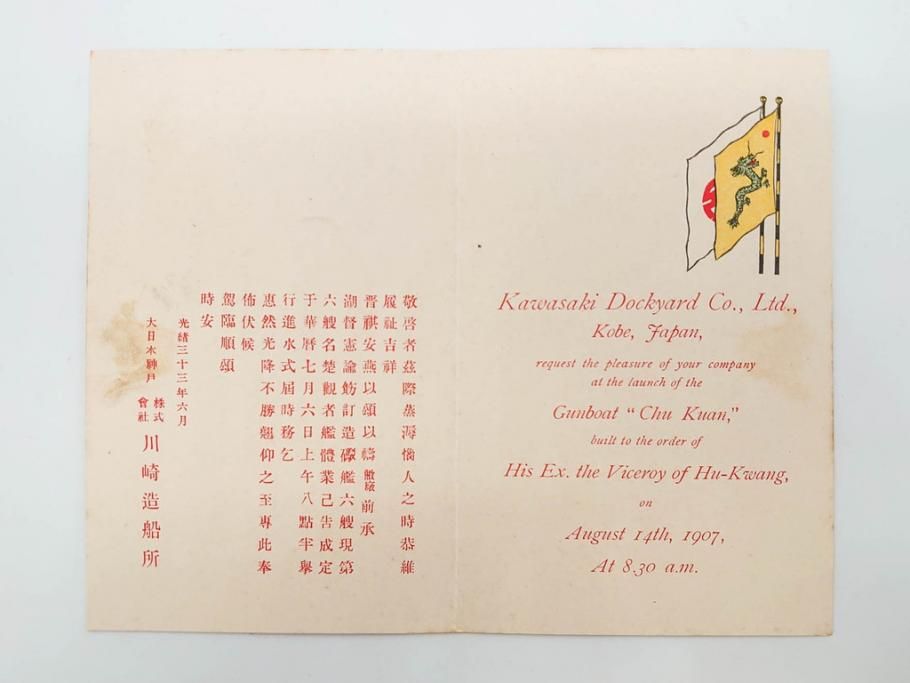 敬啓者茲際蒸溽惱人之時恭維
履祉吉祥
晋祺安燕以頌以禱敝廠前承
湖督憲諭飭訂造礮艦六艘現第
六艘名楚觀者艦體業已告成定
于華曆七月六日上午八點半舉
行進水式屆時務乞
惠然光降不勝翹仰之至專此奉
佈伏候
駕臨順頌
時安
光緒三十三年六月
大日本神戸 株式會社 川崎造船所
Kawasaki Dockyard Co., Ltd.,
Kobe, Japan,
request the pleasure of your company
at the launch of the
Gunboat "Chu Kuan,"
built to the order of
His Ex. the Viceroy of Hu-Kwang,
on
August 14th, 1907,
At 8.30 a.m.